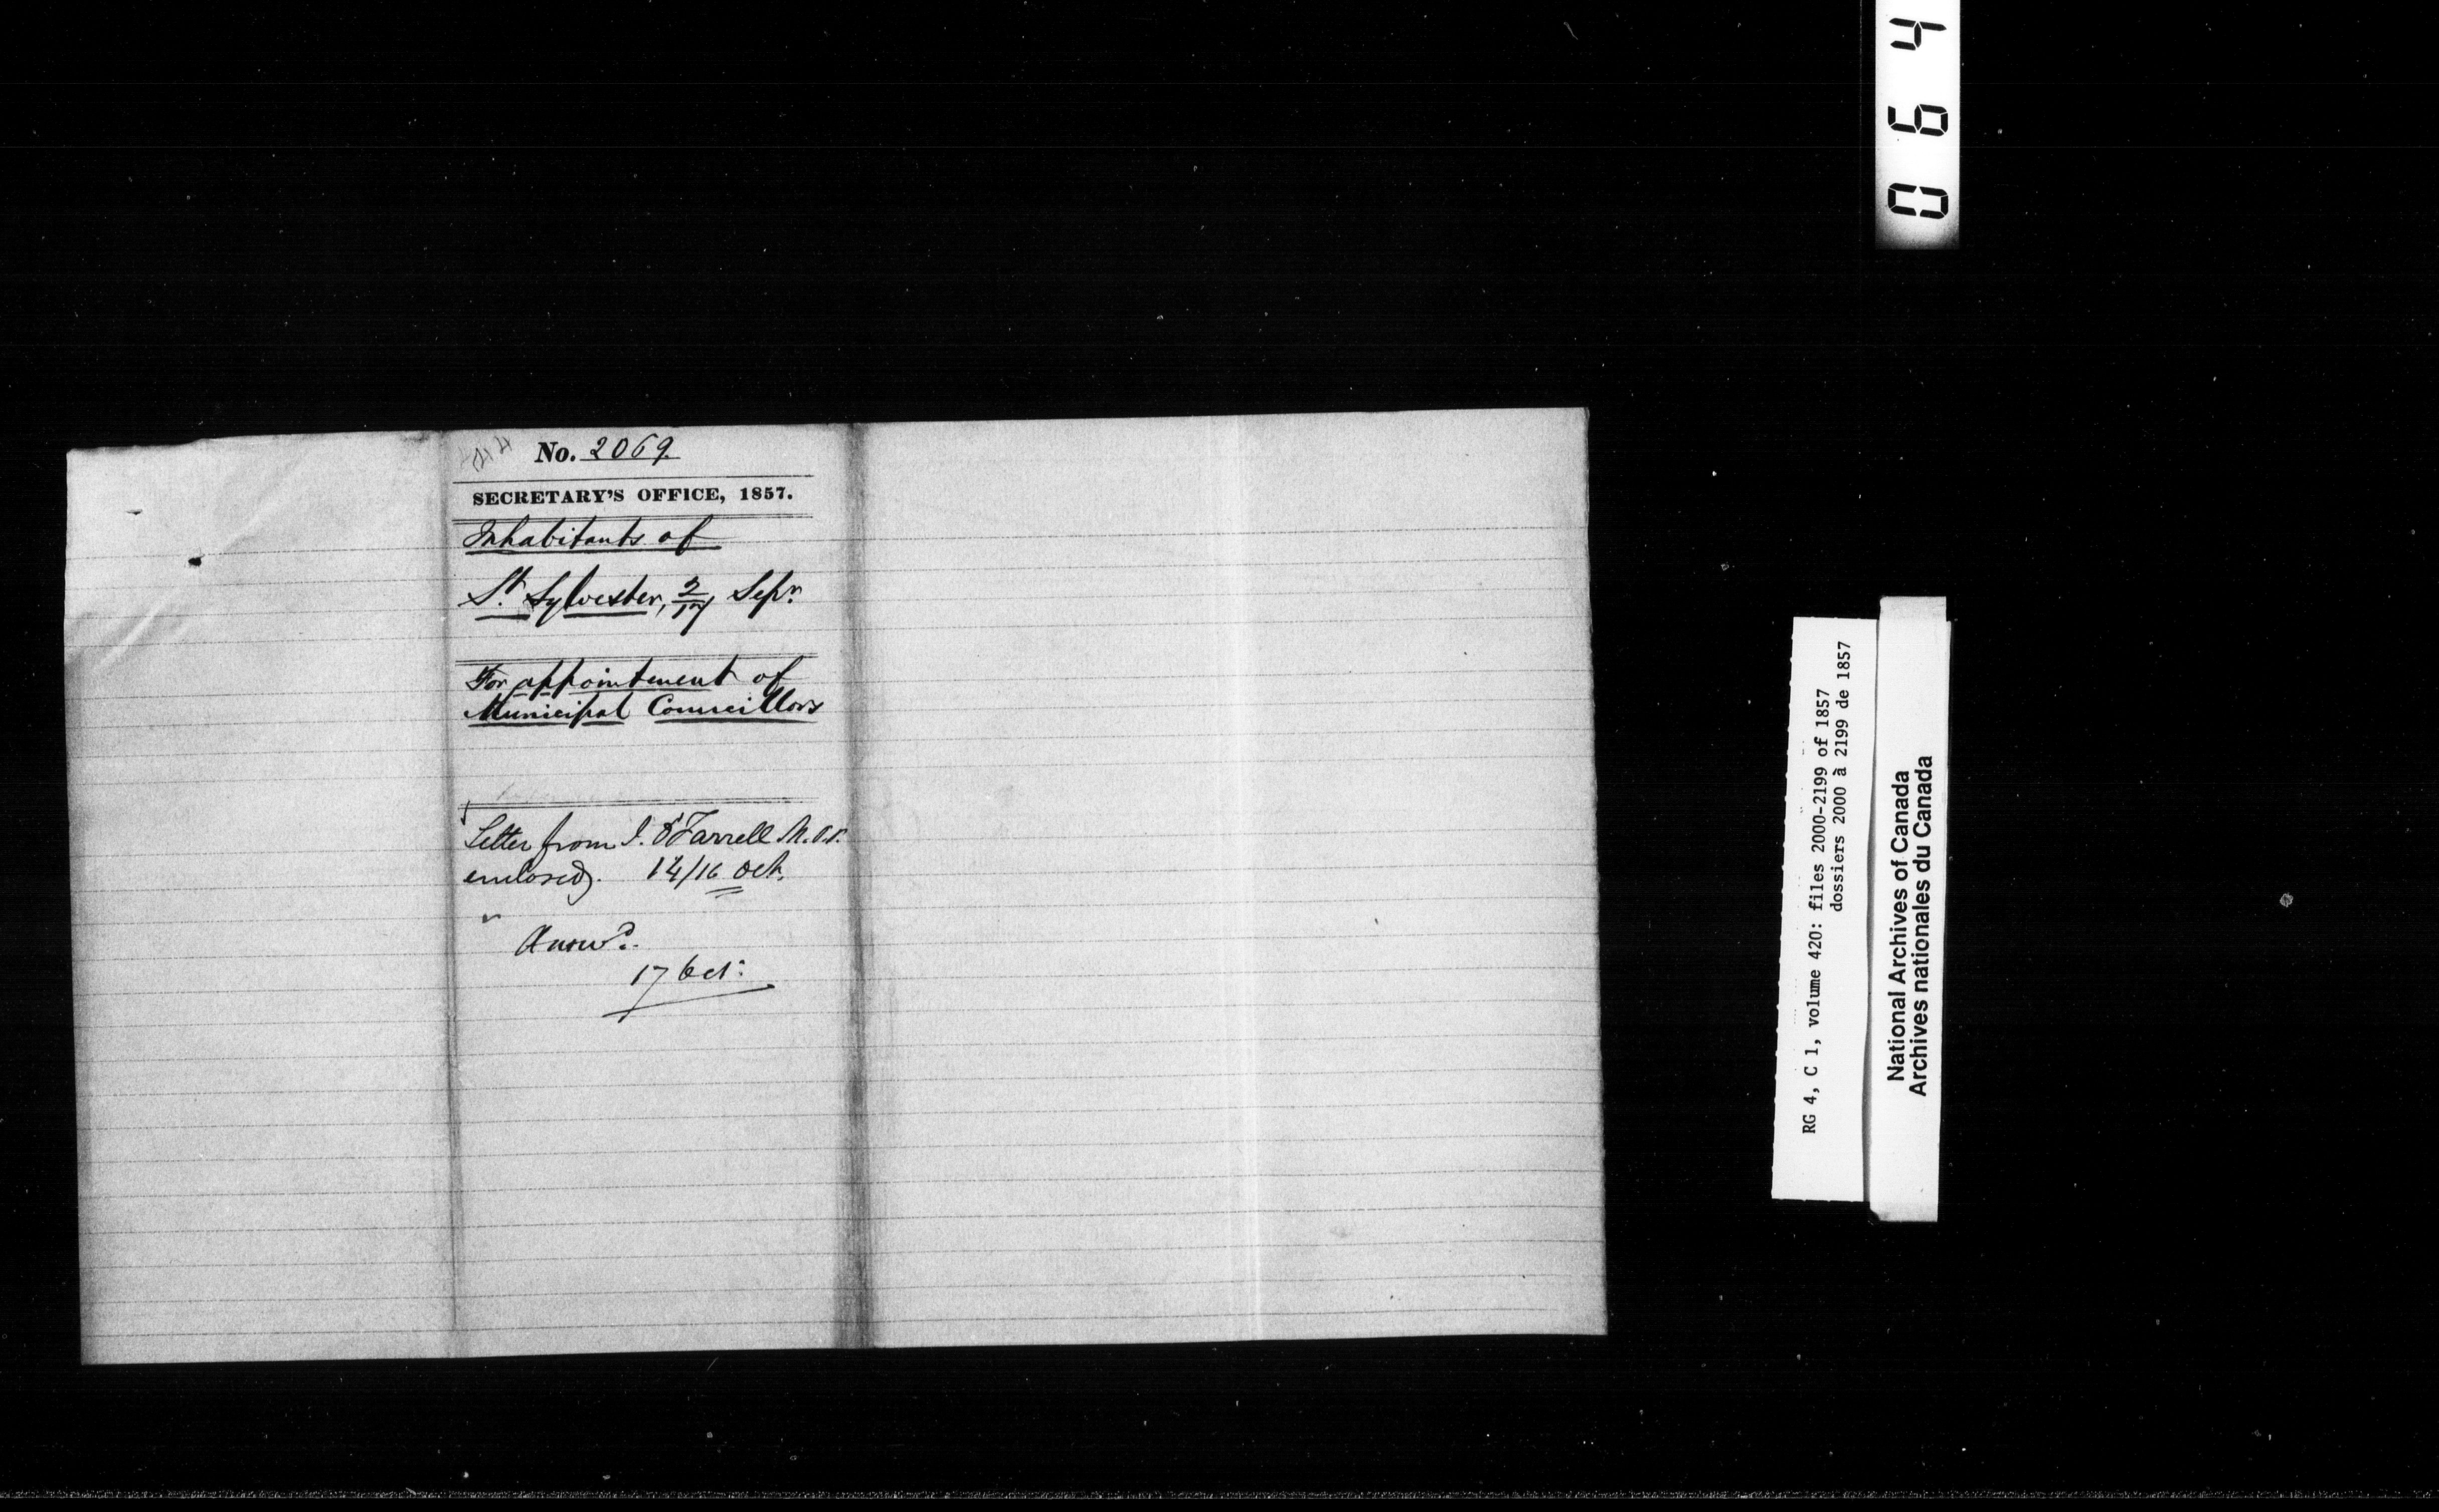 No. 2069.
SECRETARY'S OFFICE, 1857.
Inhabitants of
St. Sylvester, 2/17 Sepr.
For appointment of
Municipal Councillors
Letter from J. O'Farrell M.P.P.
enclosed. 14/16 Oct.
Answd.
17 Oct:
064
RG 4, C 1, volume 420: files 2000-2199 of 1857
dossiers 2000 à 2199 de 1857
National Archives of Canada
Archives nationales du Canada